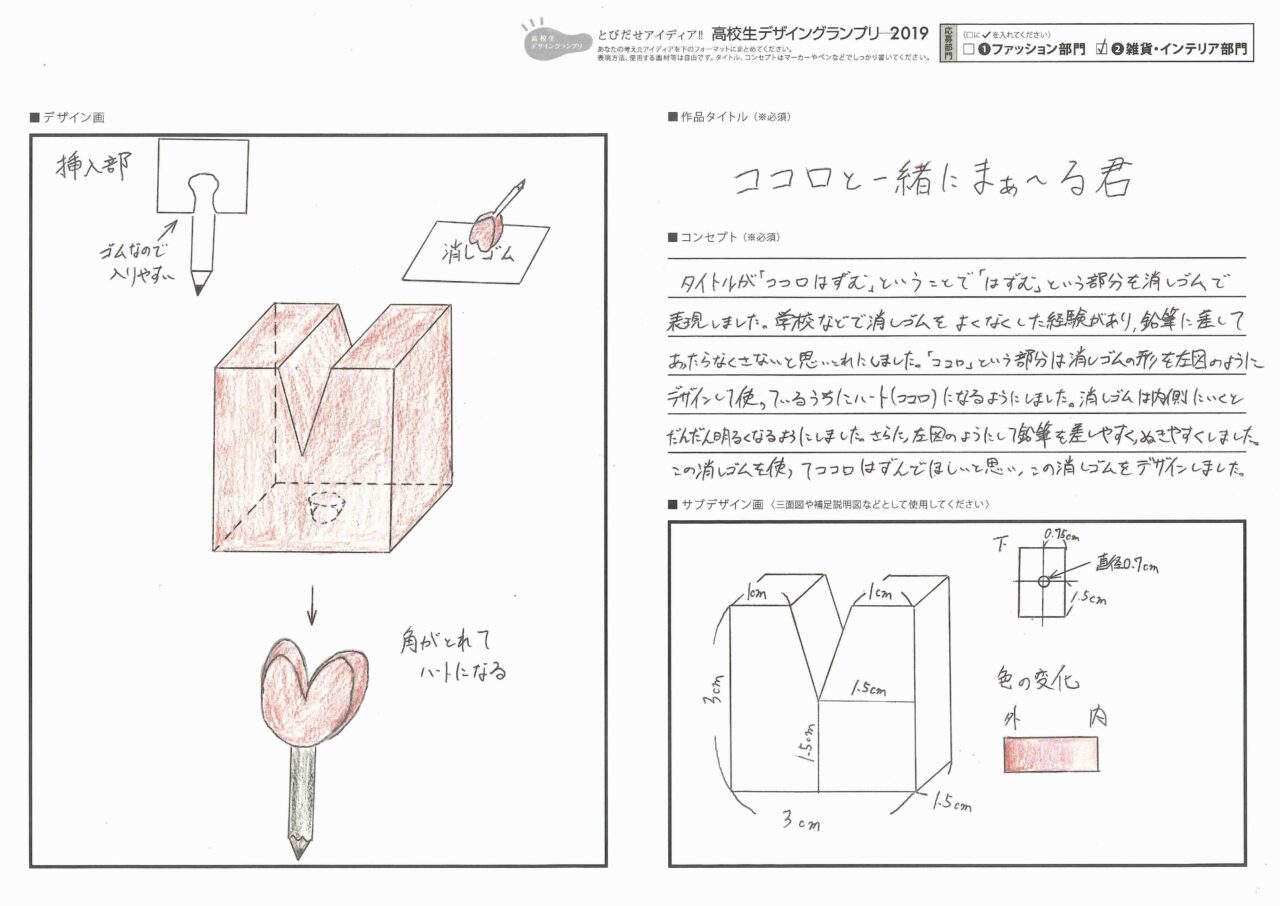 高校生
デザイングランプリ
とびだせアイディア!! 高校生デザイングランプリ 2019
あなたの考えたアイディアを下のフォーマットにまとめてください。
表現方法、使用する画材等は自由です。タイトル、コンセプトはマーカーやペンなどでしっかり書いてください。
応募部門
(□に✓を入れてください)
□❶ファッション部門 ☑❷雑貨・インテリア部門
■デザイン画
挿入部
ゴムなので
入りやすい
消しゴム
角がとれて
ハートになる
■作品タイトル（※必須）
ココロと一緒にまぁ～る君
■コンセプト（※必須）
タイトルが「ココロはずむ」ということで「はずむ」という部分を消しゴムで
表現しました。学校などで消しゴムをよくなくした経験があり,鉛筆に差して
あったらなくさないと思いこれにしました。「ココロ」という部分は消しゴムの形を左図のように
デザインして使っているうちにハート(ココロ)になるようにしました。消しゴムは内側にいくと
だんだん明るくなるようにしました。さらに,左図のようにして鉛筆を差しやすく,ぬきやすくしました。
この消しゴムを使ってココロはずんでほしいと思い,この消しゴムをデザインしました。
■サブデザイン画〈三面図や補足説明図などとして使用してください〉
1cm
1cm
3cm
1.5cm
1.5cm
3cm
1.5cm
下
0.75cm
直径0.7cm
1.5cm
色の変化
外 内